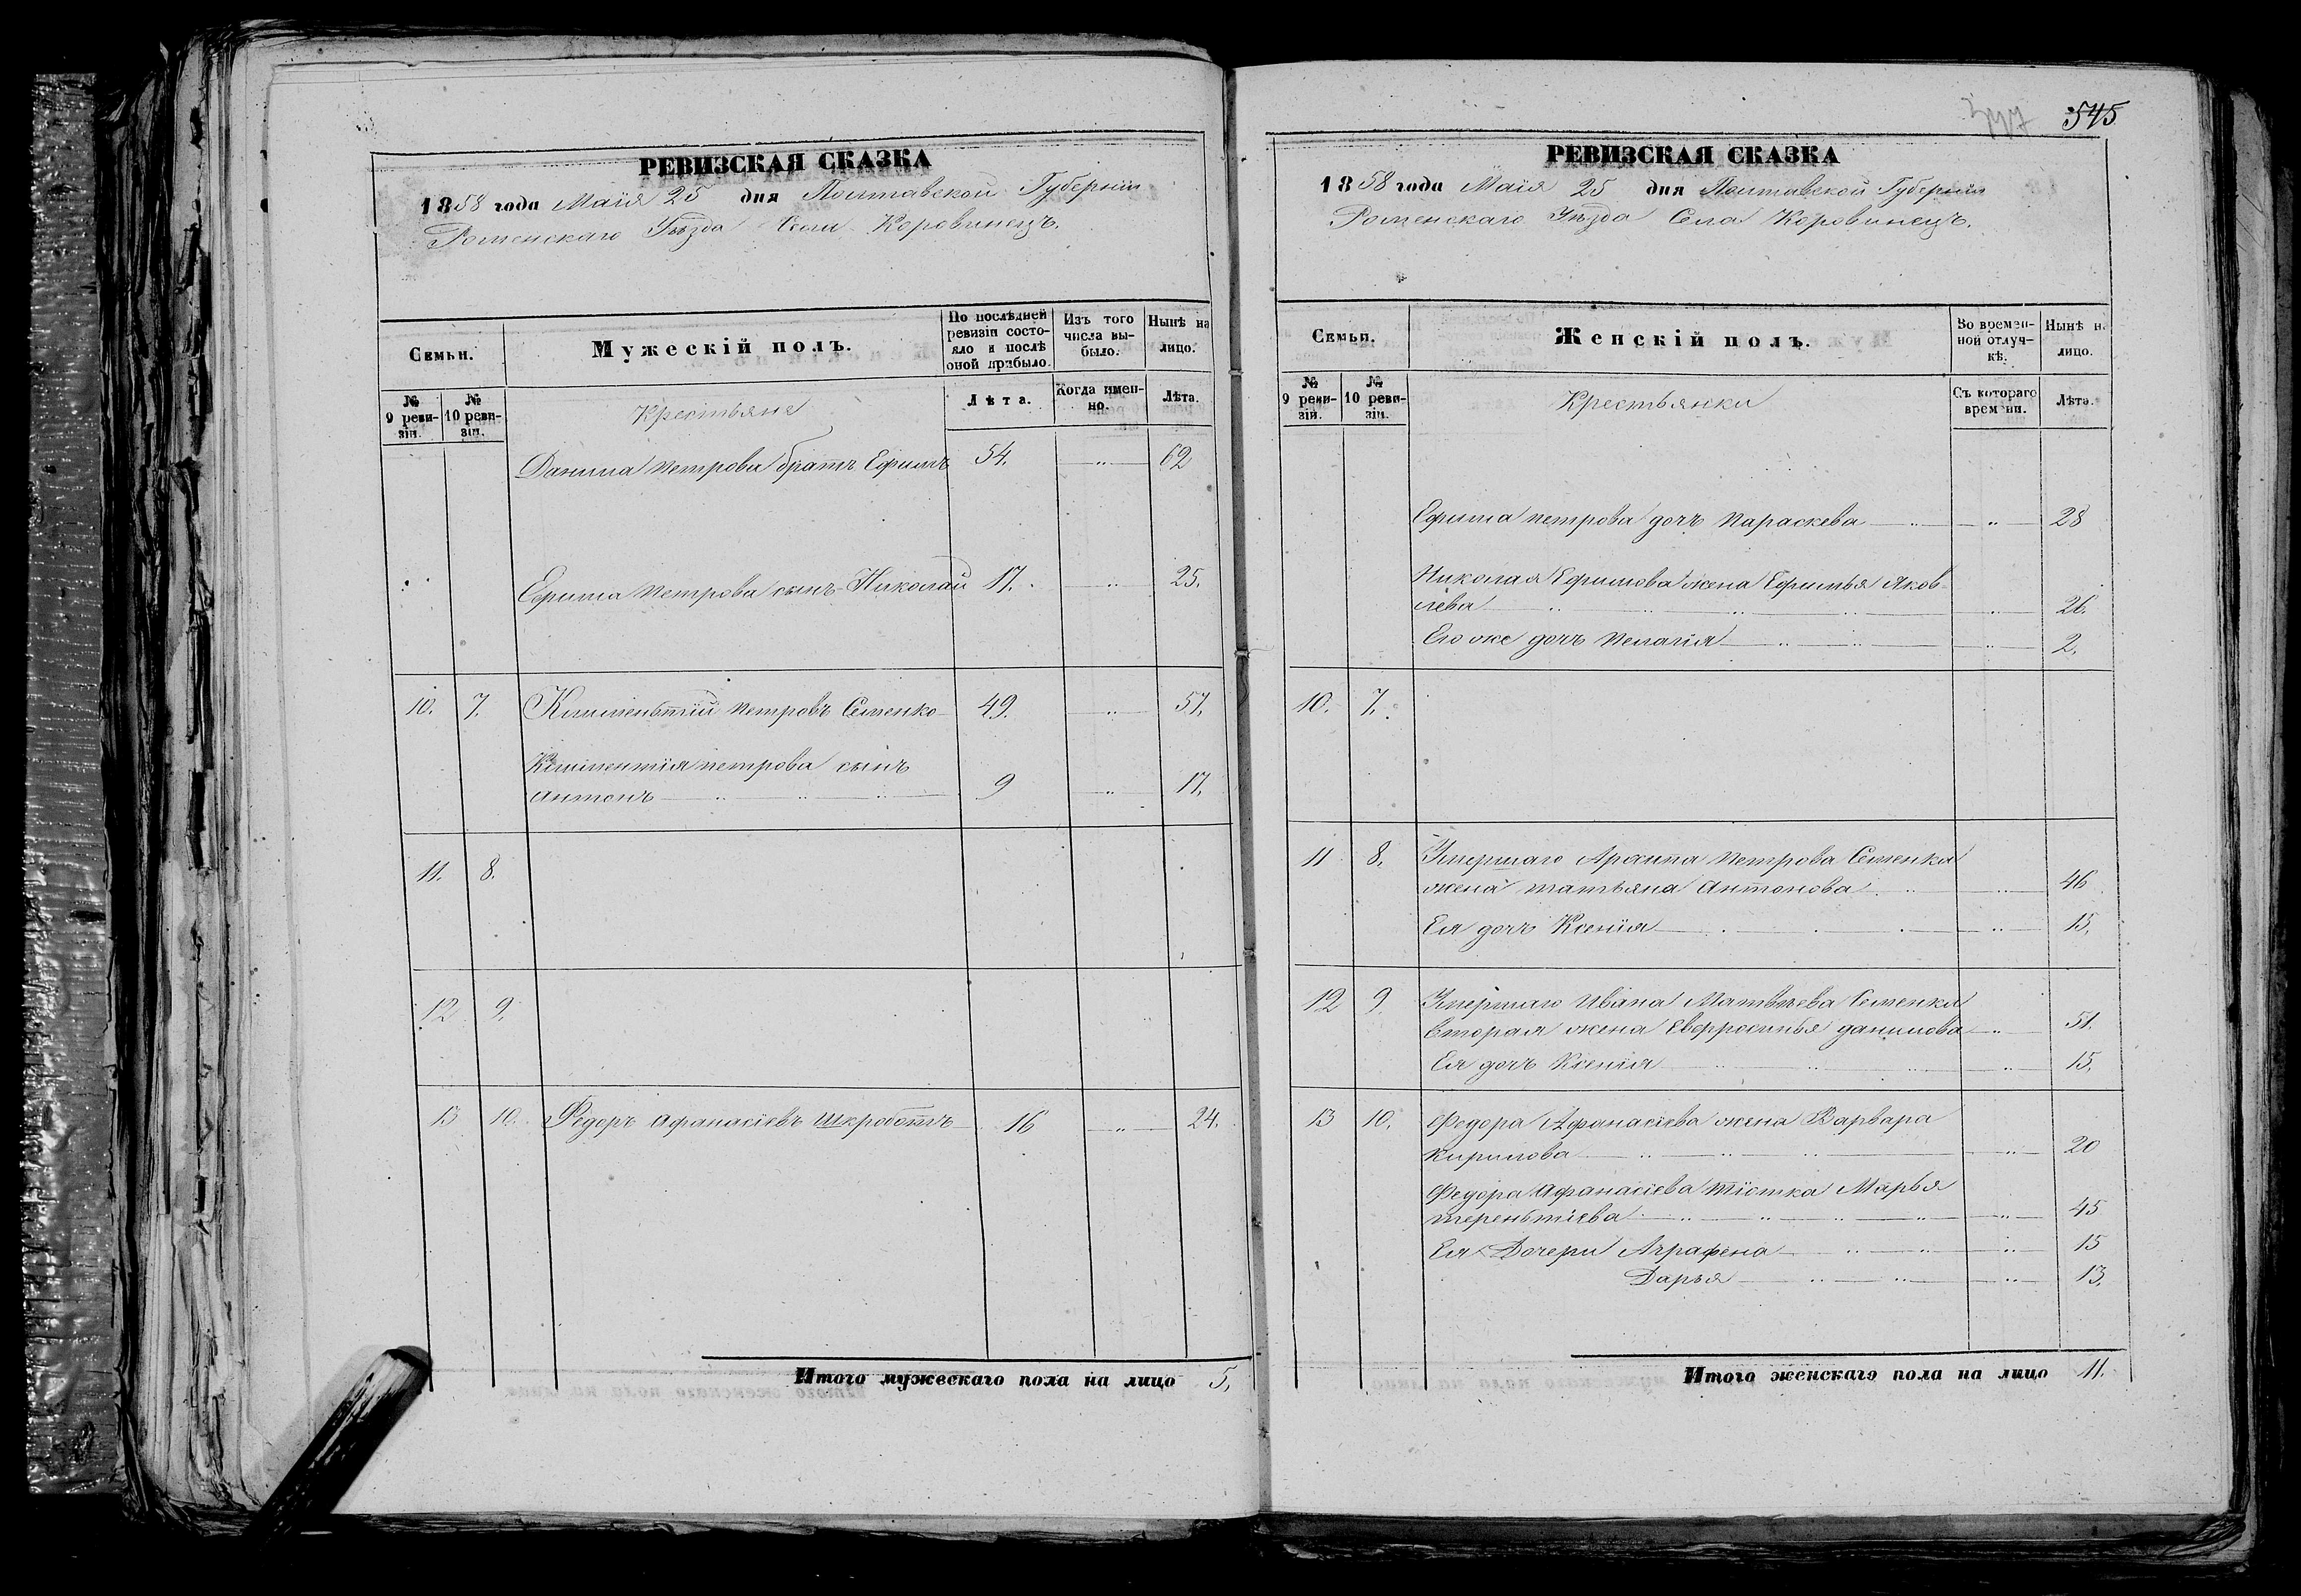 РЕВИЗСКАЯ СКАЗКА
1858 года Маія 25 дня Полтавской Губерніи
Роменскаго Уѣзда Села Коровинецъ.
Семьи.
Мужескій полъ.
По послѣдней ревизіи состояло и послѣ оной прибыло.
Изъ того числа выбыло.
Нынѣ на лицо.
№ 9 ревизіи.
№ 10 ревизіи.
Крестьяне
Лѣта.
Когда именно.
Лѣта.
Данила петрова братъ Ефимъ 54. — „ — 62
Ефима петрова сынъ Николай 17. — „ — 25.
10. 7. Климентій петровъ Семенко 49. — „ — 57.
Климентія петрова сынъ
антонъ 9 — „ — 17.
11. 8.
12 9.
13 10. Федоръ афанасіевъ шкроботъ 16 — „ — 24.
Итого мужескаго пола на лицо 5.
545
РЕВИЗСКАЯ СКАЗКА
1858 года Маія 25 дня Полтавской Губерніи
Роменскаго Уѣзда Села Коровинецъ.
Семьи.
Женскій полъ.
Во временной отлучкѣ.
Нынѣ н. лицо.
№ 9 ревизіи.
№ 10 ревизіи.
Крестьянки
Съ котораго времени.
Лѣта.
Ефима петрова дочъ параскева — „ — 28
Николая Ефимова жена Ефимья Яков-
лева — „ — 26.
Его же дочъ пелагія — „ — 2.
10. 7.
11 8. Умершаго Архипа петрова Семенка
жена татьяна антонова — „ — 46
Ея дочъ Ксенія — „ — 15.
12 9. Умершаго ивана Матвѣева Семенка
вторая жена Евфросинья данилова — „ — 51.
Ея дочъ Ксенія — „ — 15.
13 10. Федора Афанасіева жена Варвара
кирилова — „ — 20
Федора афанасіева тіотка Марья
терентіева — „ — 45
Ея Дочери Аграфена — „ — 15
Дарья — „ — 13.
Итого женскаго пола на лицо 11.